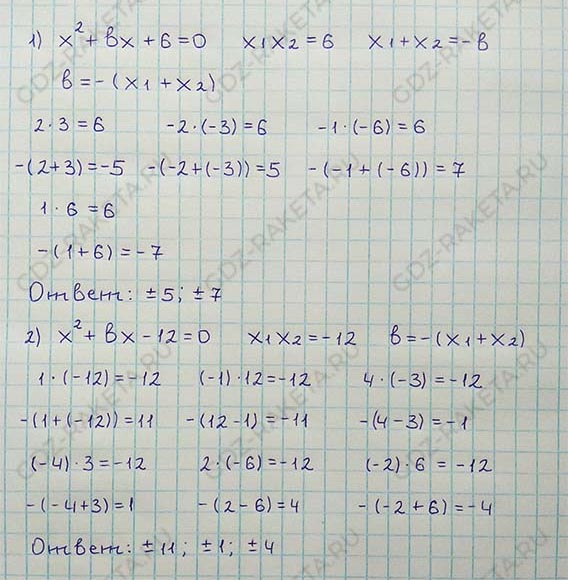 1) x² + bx + 6 = 0 x₁x₂ = 6 x₁ + x₂ = -b
b = -(x₁ + x₂)
2·3 = 6 -2·(-3) = 6 -1·(-6) = 6
-(2+3) = -5 -(-2+(-3)) = 5 -(-1+(-6)) = 7
1·6 = 6
-(1+6) = -7
Ответ: ±5; ±7
2) x² + bx - 12 = 0 x₁x₂ = -12 b = -(x₁ + x₂)
1·(-12) = -12 (-1)·12 = -12 4·(-3) = -12
-(1+(-12)) = 11 -(12-1) = -11 -(4-3) = -1
(-4)·3 = -12 2·(-6) = -12 (-2)·6 = -12
-(-4+3) = 1 -(2-6) = 4 -(-2+6) = -4
Ответ: ±11; ±1; ±4
GDZ-RAKETA.RU